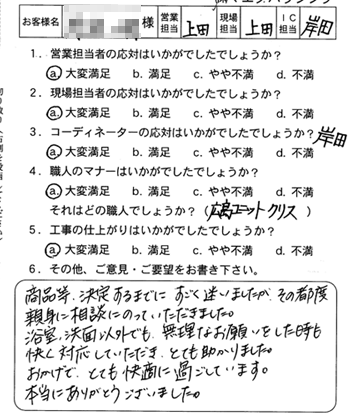 お客様名 様 営業担当 上田 現場担当 上田 IC担当 岸田
1．営業担当者の応対はいかがでしたでしょうか？
a. 大変満足 b. 満足 c. やや不満 d. 不満
2．現場担当者の応対はいかがでしたでしょうか？
a. 大変満足 b. 満足 c. やや不満 d. 不満
3．コーディネーターの応対はいかがでしたでしょうか？ 岸田
a. 大変満足 b. 満足 c. やや不満 d. 不満
4．職人のマナーはいかがでしたでしょうか？
a. 大変満足 b. 満足 c. やや不満 d. 不満
それはどの職人でしょうか？（広島ユニット クリス）
5．工事の仕上がりはいかがでしたでしょうか？
a. 大変満足 b. 満足 c. やや不満 d. 不満
6．その他、ご意見・ご要望をお書き下さい。
商品等、決定するまでに すごく迷いましたが、その都度
親身に相談にのっていただきました。
浴室、洗面以外でも、無理なお願いをした時も
快く対応していただき、とても助かりました。
おかげで、とても快適に過ごしています。
本当にありがとうございました。